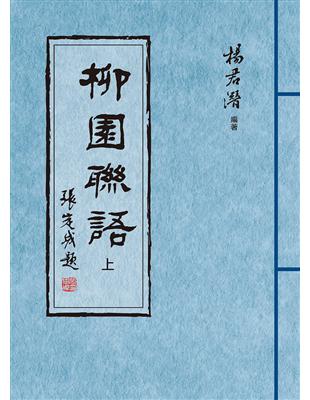 楊君潛
編著
柳園聯語
上
張定成題